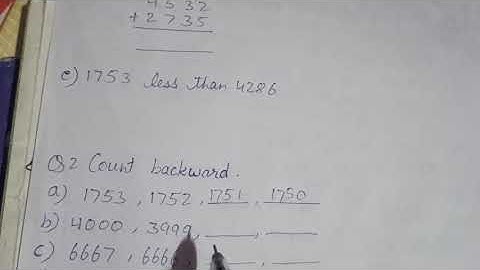 4532
+2735
e) 1753 less than 4286
Q2 Count backward.
a) 1753, 1752, 1751, 1750
b) 4000, 3999, ____, ____
c) 6667, 666